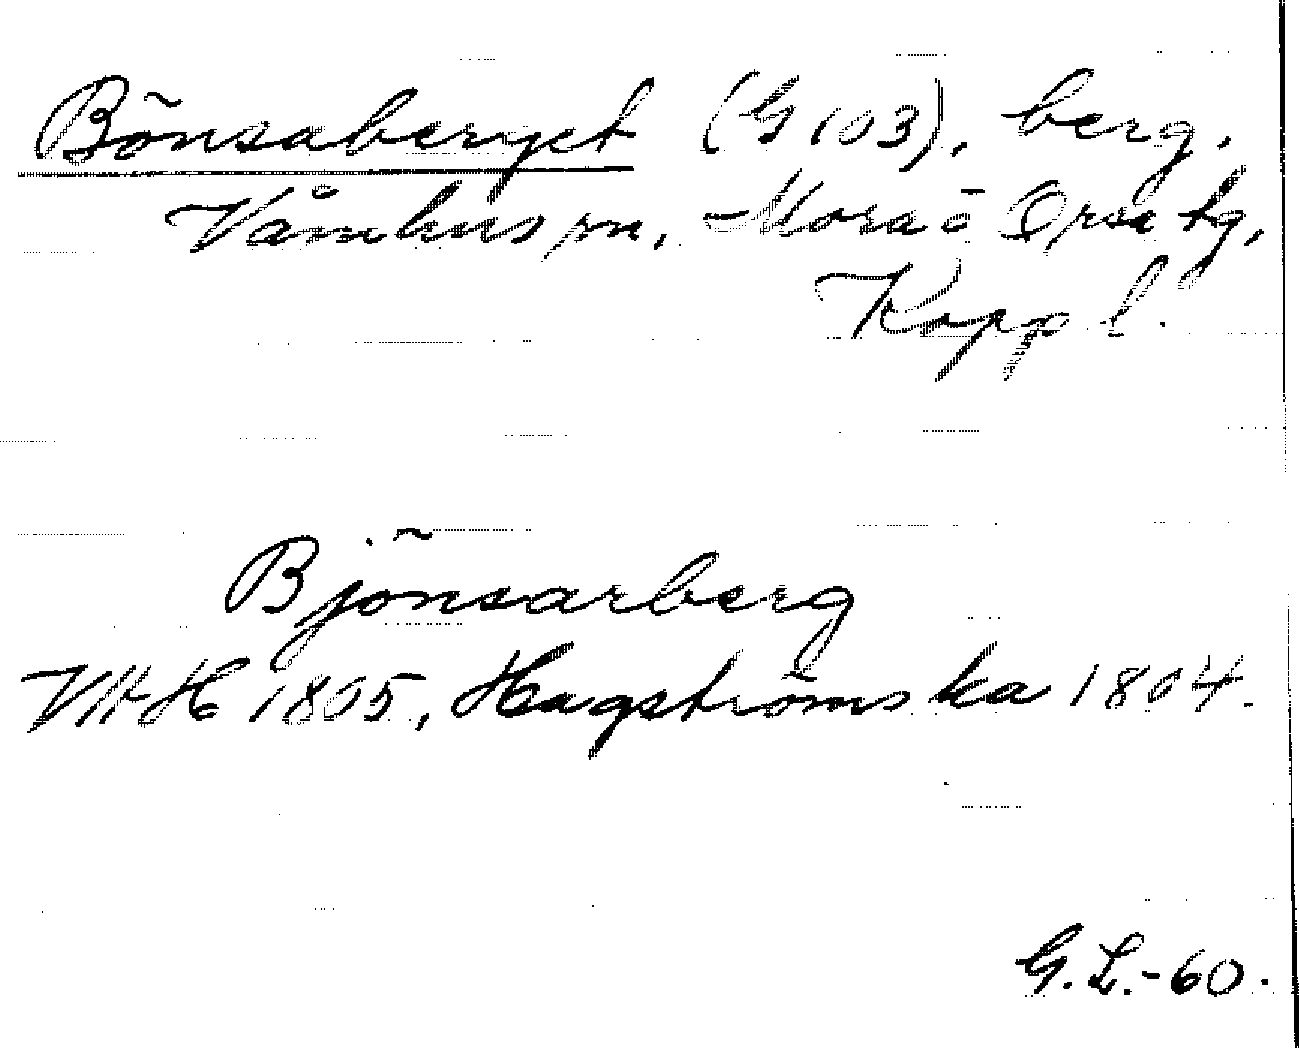 Bönsaberget (G 103), berg.
Våmhus sn, Mora o Orsa tg,
Kopp l.
Bjönsarberg
1805, Hagströmska 1804.
G.L.-60.